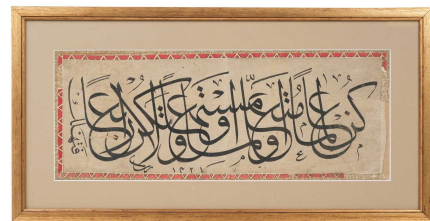 كن عالما او متعلما او مستمعا ولا تكن رابعا